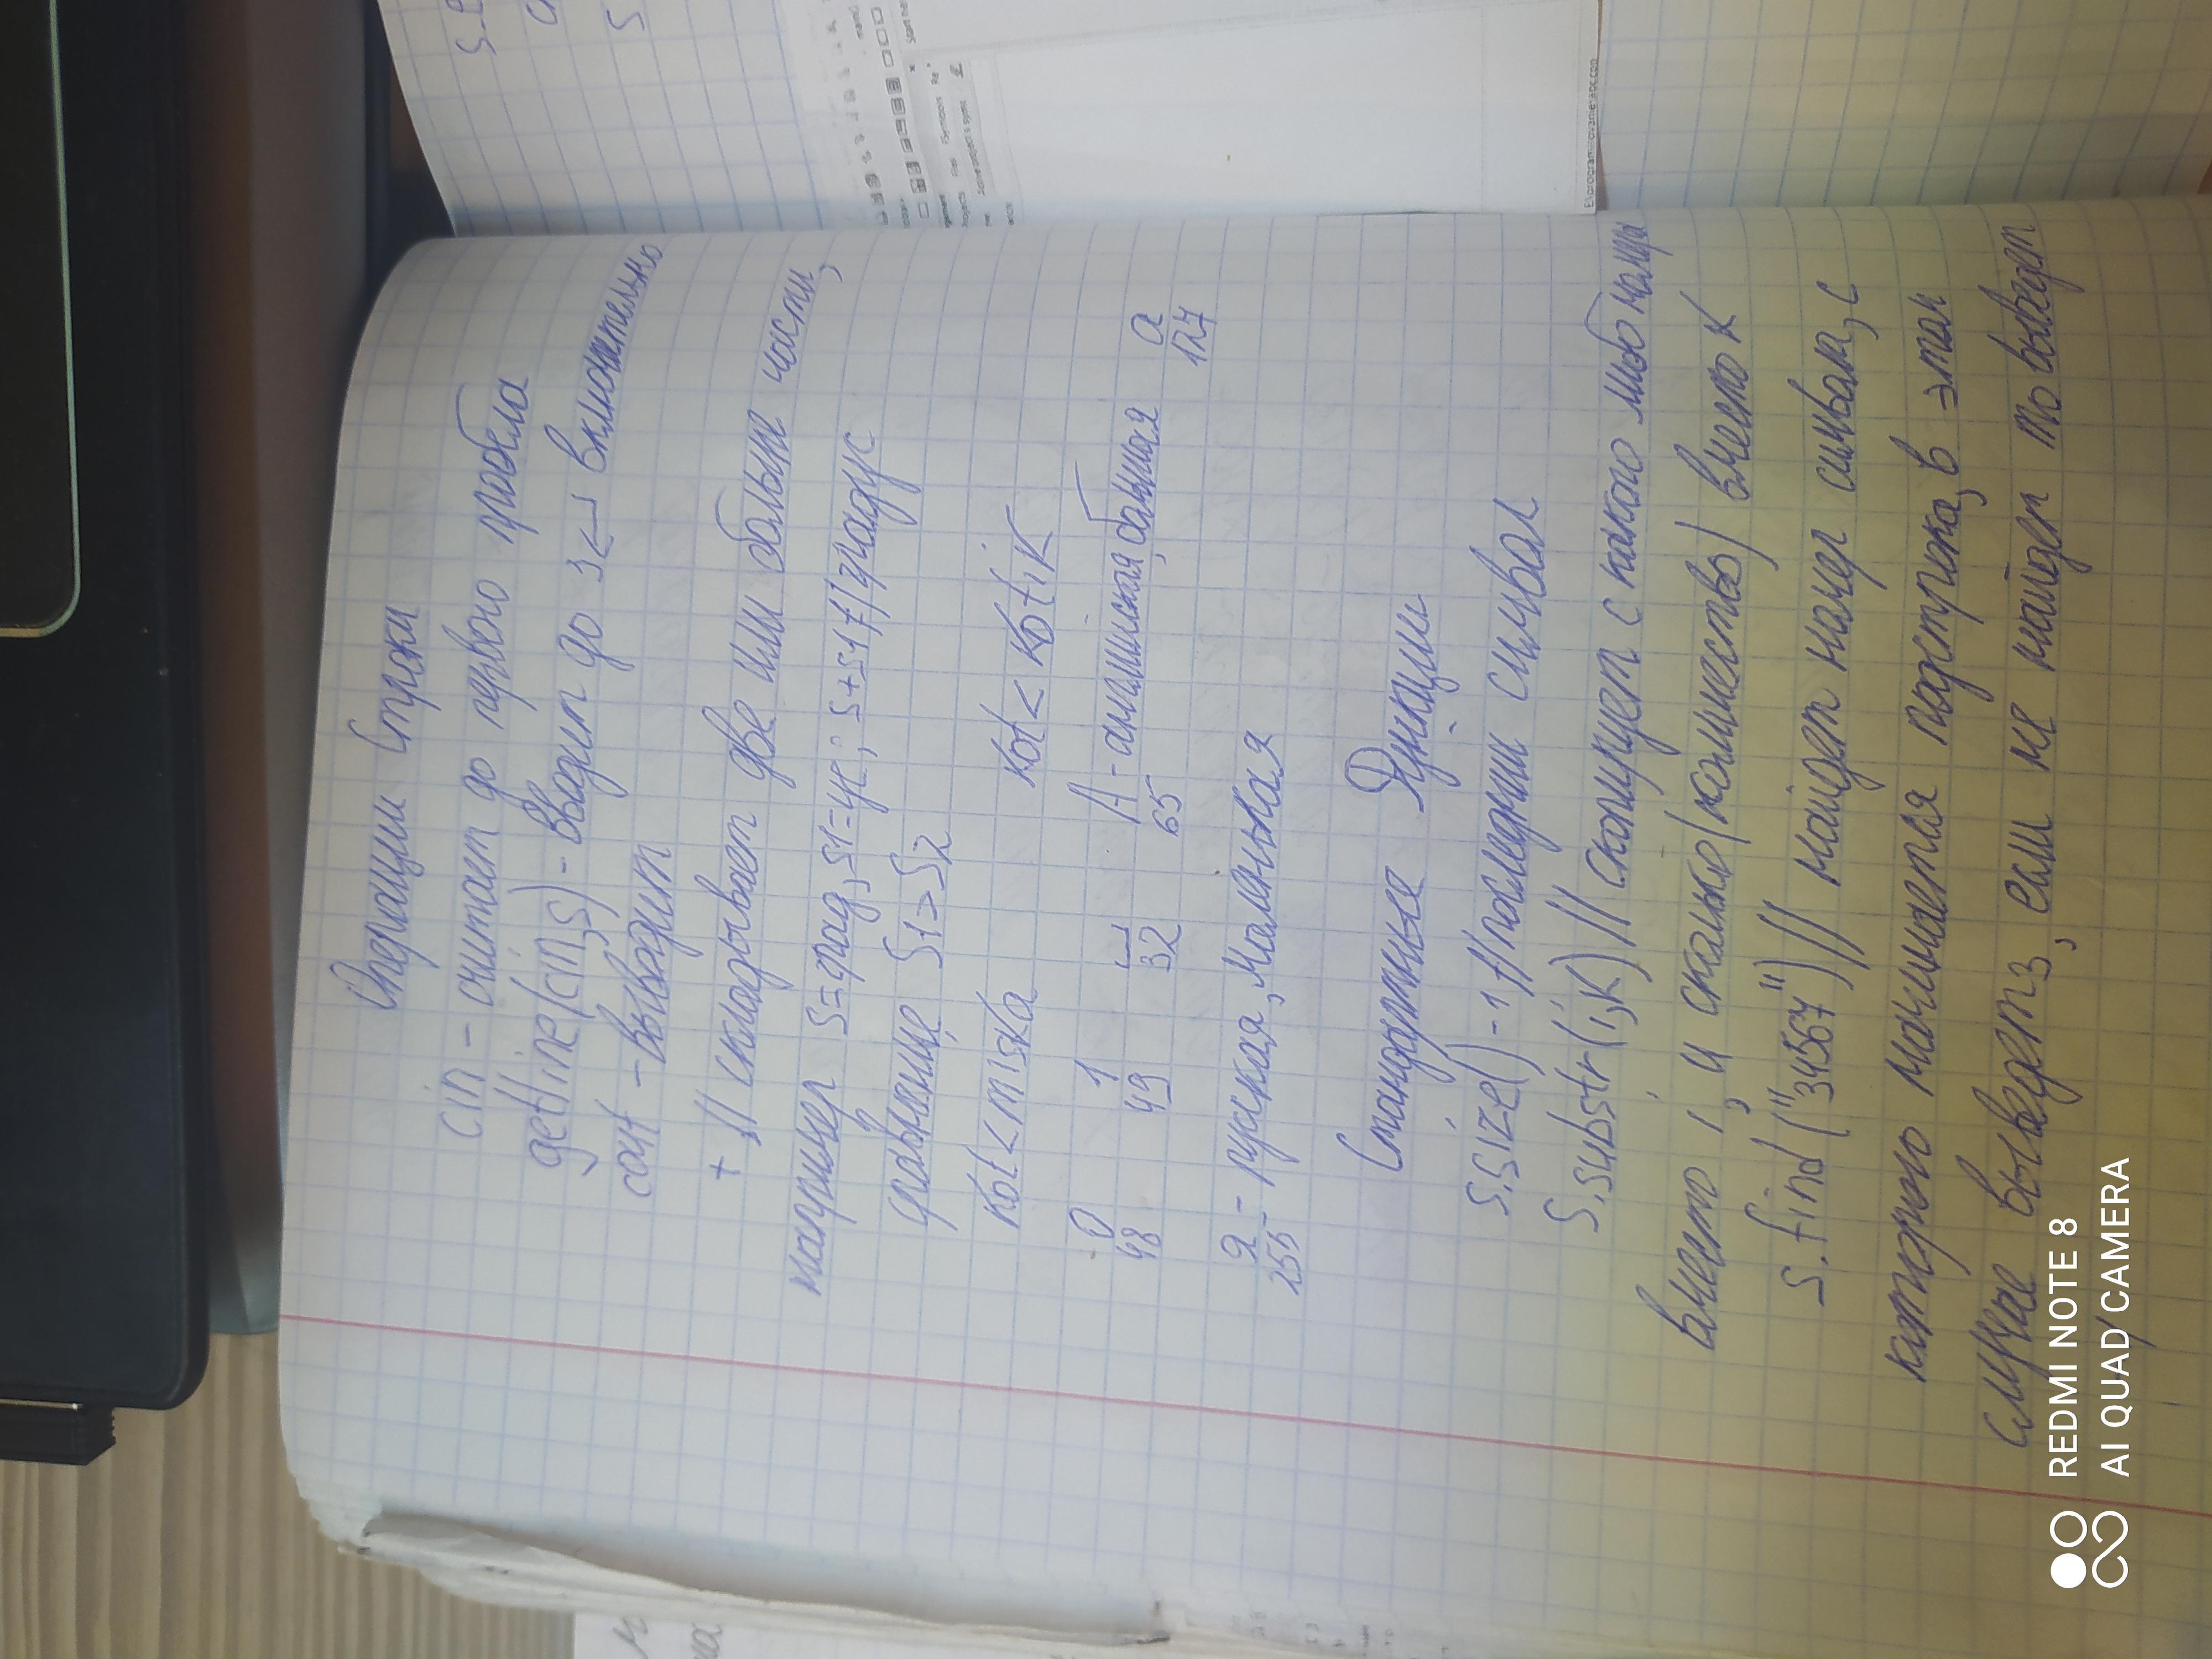 Операции Строки
cin - считает до первого пробела
getline(cin,s) - вводит до з ↵ включительно
cout - выводит
+ // складывает две или больше части,
например s=град, s1=ус; s+s1 // градус
сравнение S1>S2
Kot < miska        Kot < KotiK
0 1 ␣ A - английская, большая a
48 49 32 65 127
я - русская, маленькая
255
Стандартные Функции
S.size()-1 // последний символ
S.substr(i,K) // скопирует с какого либо номера
вместо i, и сколько (количество) вместо K
S.find("34567") // найдет номер символа, с
которого начинается подстрока, в этом
случае выведет 3, если не найдет то выведет
REDMI NOTE 8
AI QUAD CAMERA